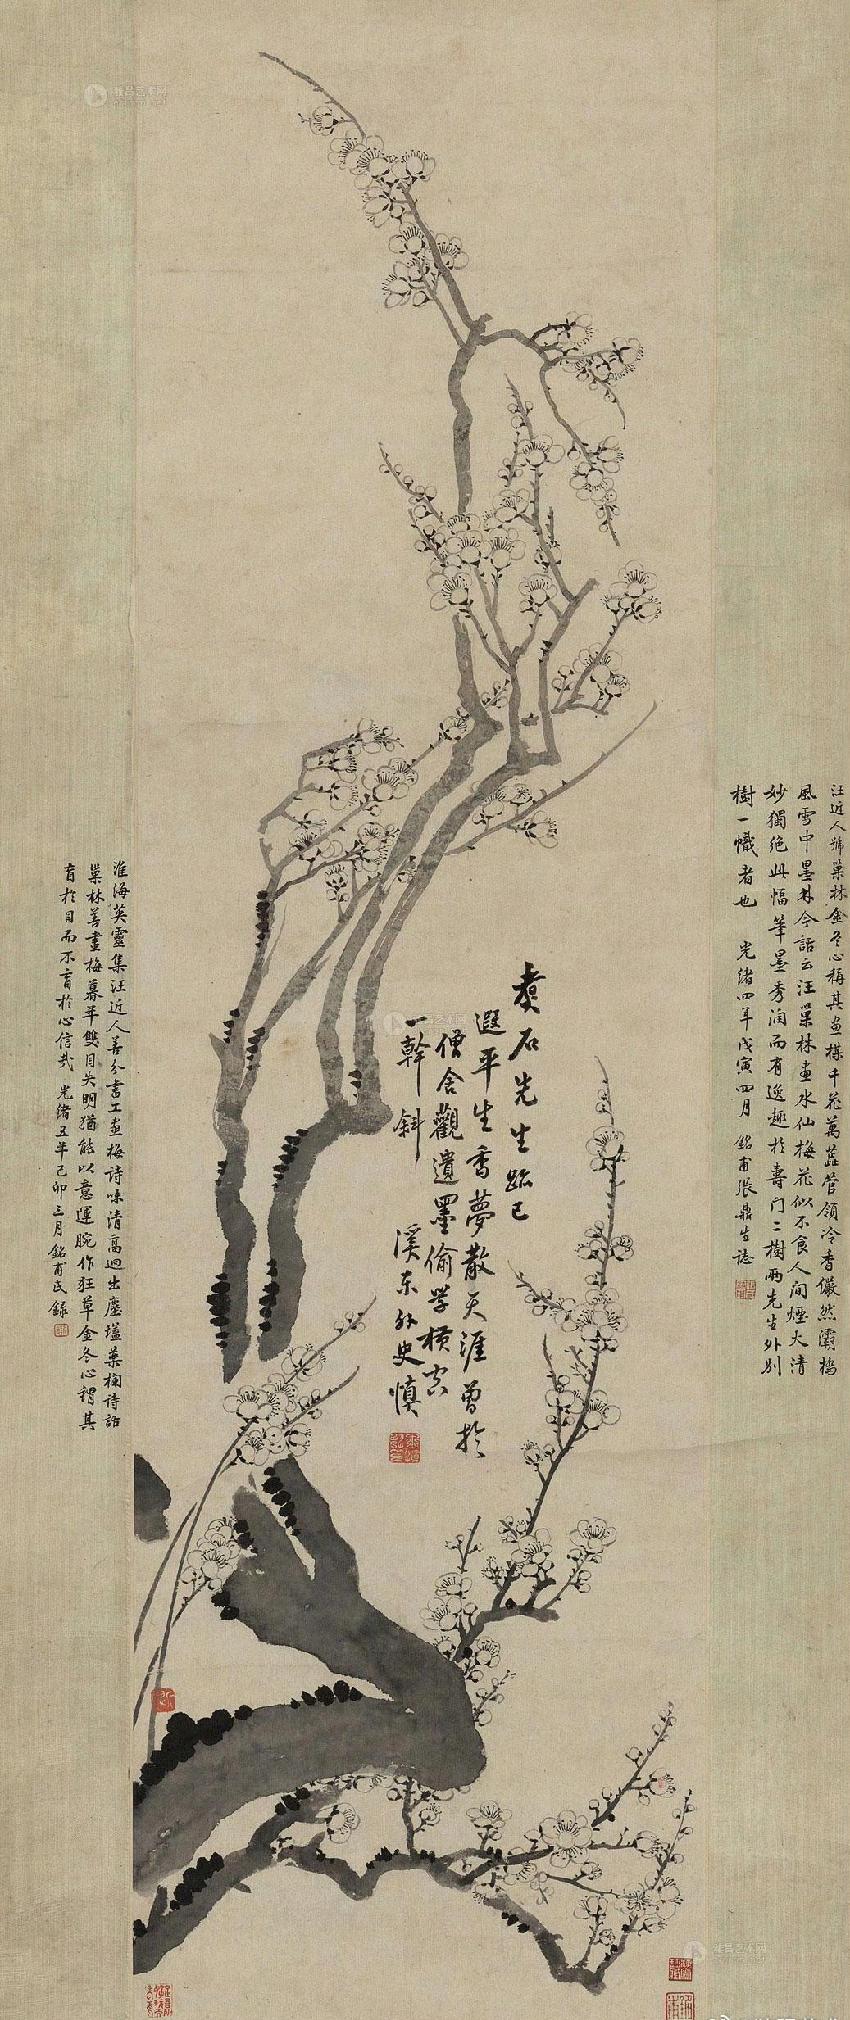 汪近人號巢林金冬心稱其畫梅千花萬蕊管領冷香儼然灞橋
風雪中墨林今話云汪巢林畫水仙梅花似不食人間煙火清
妙獨絶此幅筆墨秀潤而有逸趣於壽門二樹兩先生外別
樹一幟者也 光緒四年戊寅四月 銘甫張鼎生誌
煮石先生跡已
遐平生香夢散天涯曾於
僧舍觀遺墨偷學橫窗
一幹斜
溪東外史慎
淮海英靈集汪近人善分書工畫梅詩味清高迥出塵壒葉梅詩話
巢林善畫梅暮年雙目失明猶能以意運腕作狂草金冬心謂其
盲於目而不盲於心信哉 光緒五年己卯三月銘甫氏錄